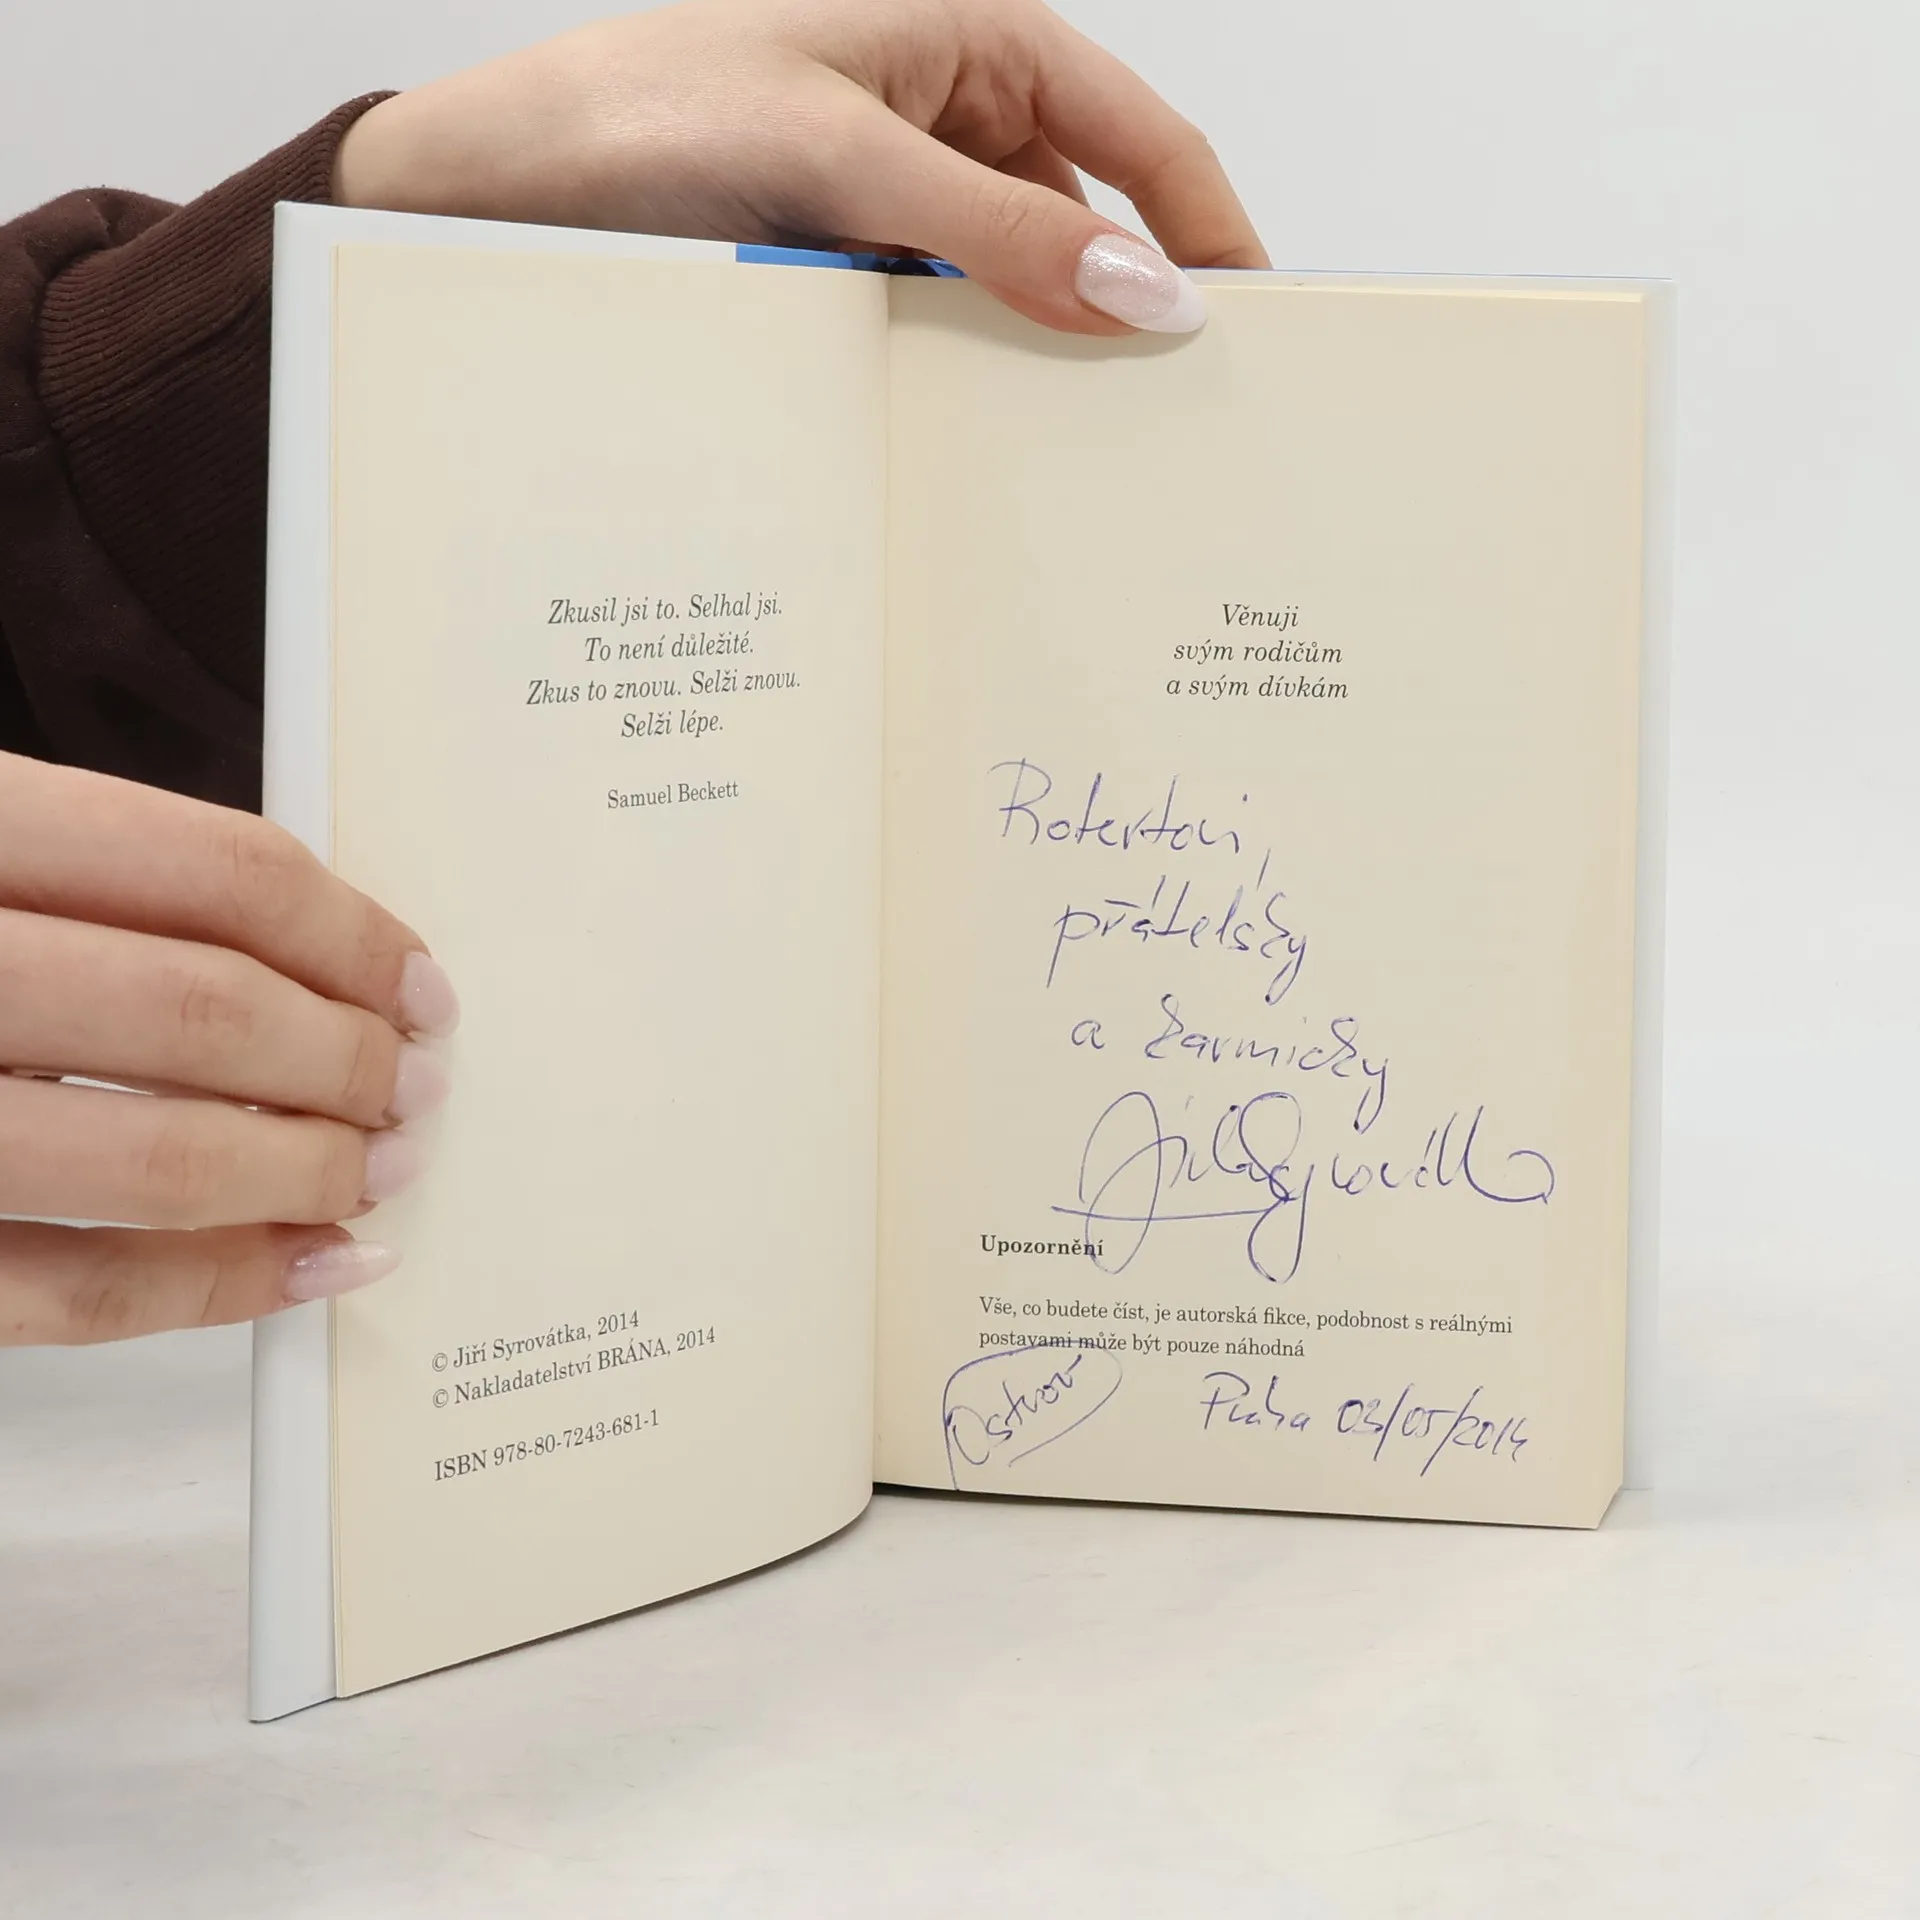 Zkusil jsi to. Selhal jsi.
To není důležité.
Zkus to znovu. Selži znovu.
Selži lépe.
Samuel Beckett
© Jiří Syrovátka, 2014
© Nakladatelství BRÁNA, 2014
ISBN 978-80-7243-681-1
Věnuji
svým rodičům
a svým dívkám
Robertovi,
přátelsky
a karmicky
Upozornění
Vše, co budete číst, je autorská fikce, podobnost s reálnými
postavami může být pouze náhodná
Praha 03/05/2014